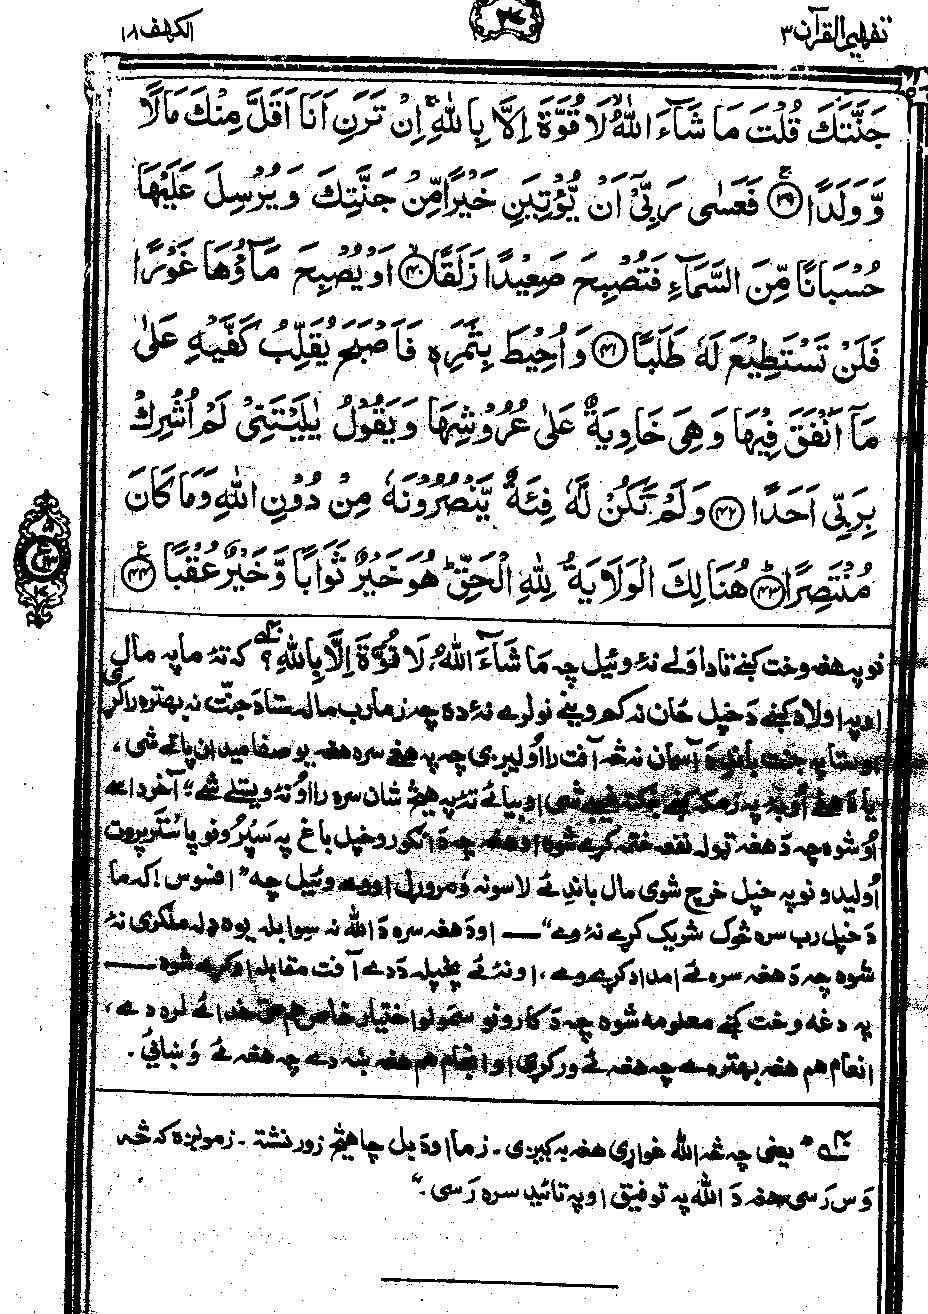 تفهیم القرآن ۳
۳۴
الکهف ۱۸
جَنَّتَكَ قُلْتَ مَا شَآءَ اللّٰهُ لَا قُوَّةَ اِلَّا بِاللّٰهِ اِنْ تَرَنِ اَنَا اَقَلَّ مِنْكَ مَالًا
وَّوَلَدًا ﴿۳۹﴾ فَعَسٰى رَبِّیْٓ اَنْ یُّؤْتِیَنِ خَیْرًا مِّنْ جَنَّتِكَ وَیُرْسِلَ عَلَیْهَا
حُسْبَانًا مِّنَ السَّمَآءِ فَتُصْبِحَ صَعِیْدًا زَلَقًا ﴿۴۰﴾ اَوْ یُصْبِحَ مَآؤُهَا غَوْرًا
فَلَنْ تَسْتَطِیْعَ لَهٗ طَلَبًا ﴿۴۱﴾ وَاُحِیْطَ بِثَمَرِهٖ فَاَصْبَحَ یُقَلِّبُ كَفَّیْهِ عَلٰى
مَآ اَنْفَقَ فِیْهَا وَهِیَ خَاوِیَةٌ عَلٰى عُرُوْشِهَا وَیَقُوْلُ یٰلَیْتَنِیْ لَمْ اُشْرِكْ
بِرَبِّیْٓ اَحَدًا ﴿۴۲﴾ وَلَمْ تَكُنْ لَّهٗ فِئَةٌ یَّنْصُرُوْنَهٗ مِنْ دُوْنِ اللّٰهِ وَمَا كَانَ
مُنْتَصِرًا ﴿۴۳﴾ هُنَالِكَ الْوَلَایَةُ لِلّٰهِ الْحَقِّ هُوَ خَیْرٌ ثَوَابًا وَّخَیْرٌ عُقْبًا ﴿۴۴﴾
نو په هغه وخت کښې تا دا ولے نۀ وئیل چه مَا شَآءَ اللّٰهُ، لَا قُوَّةَ اِلَّا بِاللّٰهِ؟ که تۀ ما په مال
او په اولاد کښې دَ خپل ځان نه کم وینې نو لرے نۀ ده چه زما رب ما له ستا دَ جنّت نه بهتر راکړی
او ستا په جنت باندے دَ آسمان نه څه آفت راولیږی چه په هغے سره هغه یو صفا میدان پاتے شی،
یا دَ هغے اوبۀ په زمکه کښې ښکته شی او بیا ئے تۀ په هیڅ شان سره را اونۀ ویستلے شے؛ آخر داسے
اوشوه چه دَ هغه ټوله نفعه ختمه کړے شوه او هغه چه دَ انګورو خپل باغ په سپرونو پاس پروت
اولیدو نو په خپل خرچ شوی مال باندے ئے لاسونه مروړل او وے وئیل چه "افسوس! که ما
دَ خپل رب سره څوک شریک کړے نۀ وے" — او دَ هغه سره دَ اللّٰه نه سِوا بله یوه ډله ملګری نۀ
شوه چه دَ هغه سره ئے امداد کړے وے، او نۀ ئے پخپله دَ دے آفت مقابله اوکړے شوه —
په دغه وخت کښې معلومه شوه چه دَ کارونو سمولو اختیار خاص هم حق خدائے لره دے،
انعام هم هغه بهتر دے چه هغه ئے ورکړی او انجام هم هغه ښه دے چه هغه ئے وښائی.
یعنی چه څه اللّٰه غواړی هغه به کیږی. زما او دَ بل چا هیڅ زور نشته. زمونږه که څه
وَس رَسی هغه دَ اللّٰه په توفیق او په تائید سره رَسی."